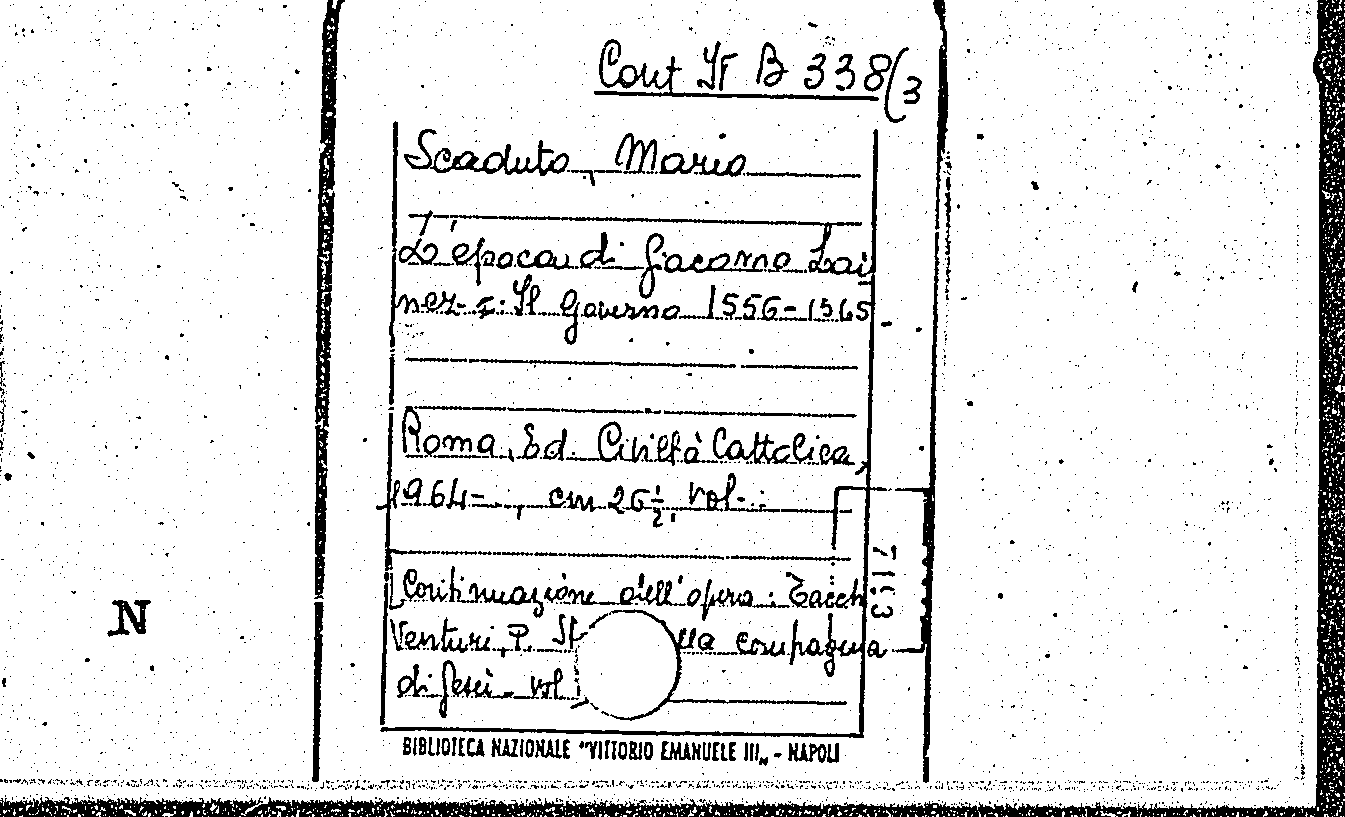 Cont It B 338(3
Scaduto, Mario
L'epoca di Giacomo Lai
nez - I: Il Governo 1556-1565 -
Roma, Ed. Civiltà Cattolica,
1964- , cm 26½. vol. :
[Continuazione dell'opera: Tacchi
Venturi, P. St lla compagnia
di Gesù - vol
N
BIBLIOTECA NAZIONALE "VITTORIO EMANUELE III„ - NAPOLI